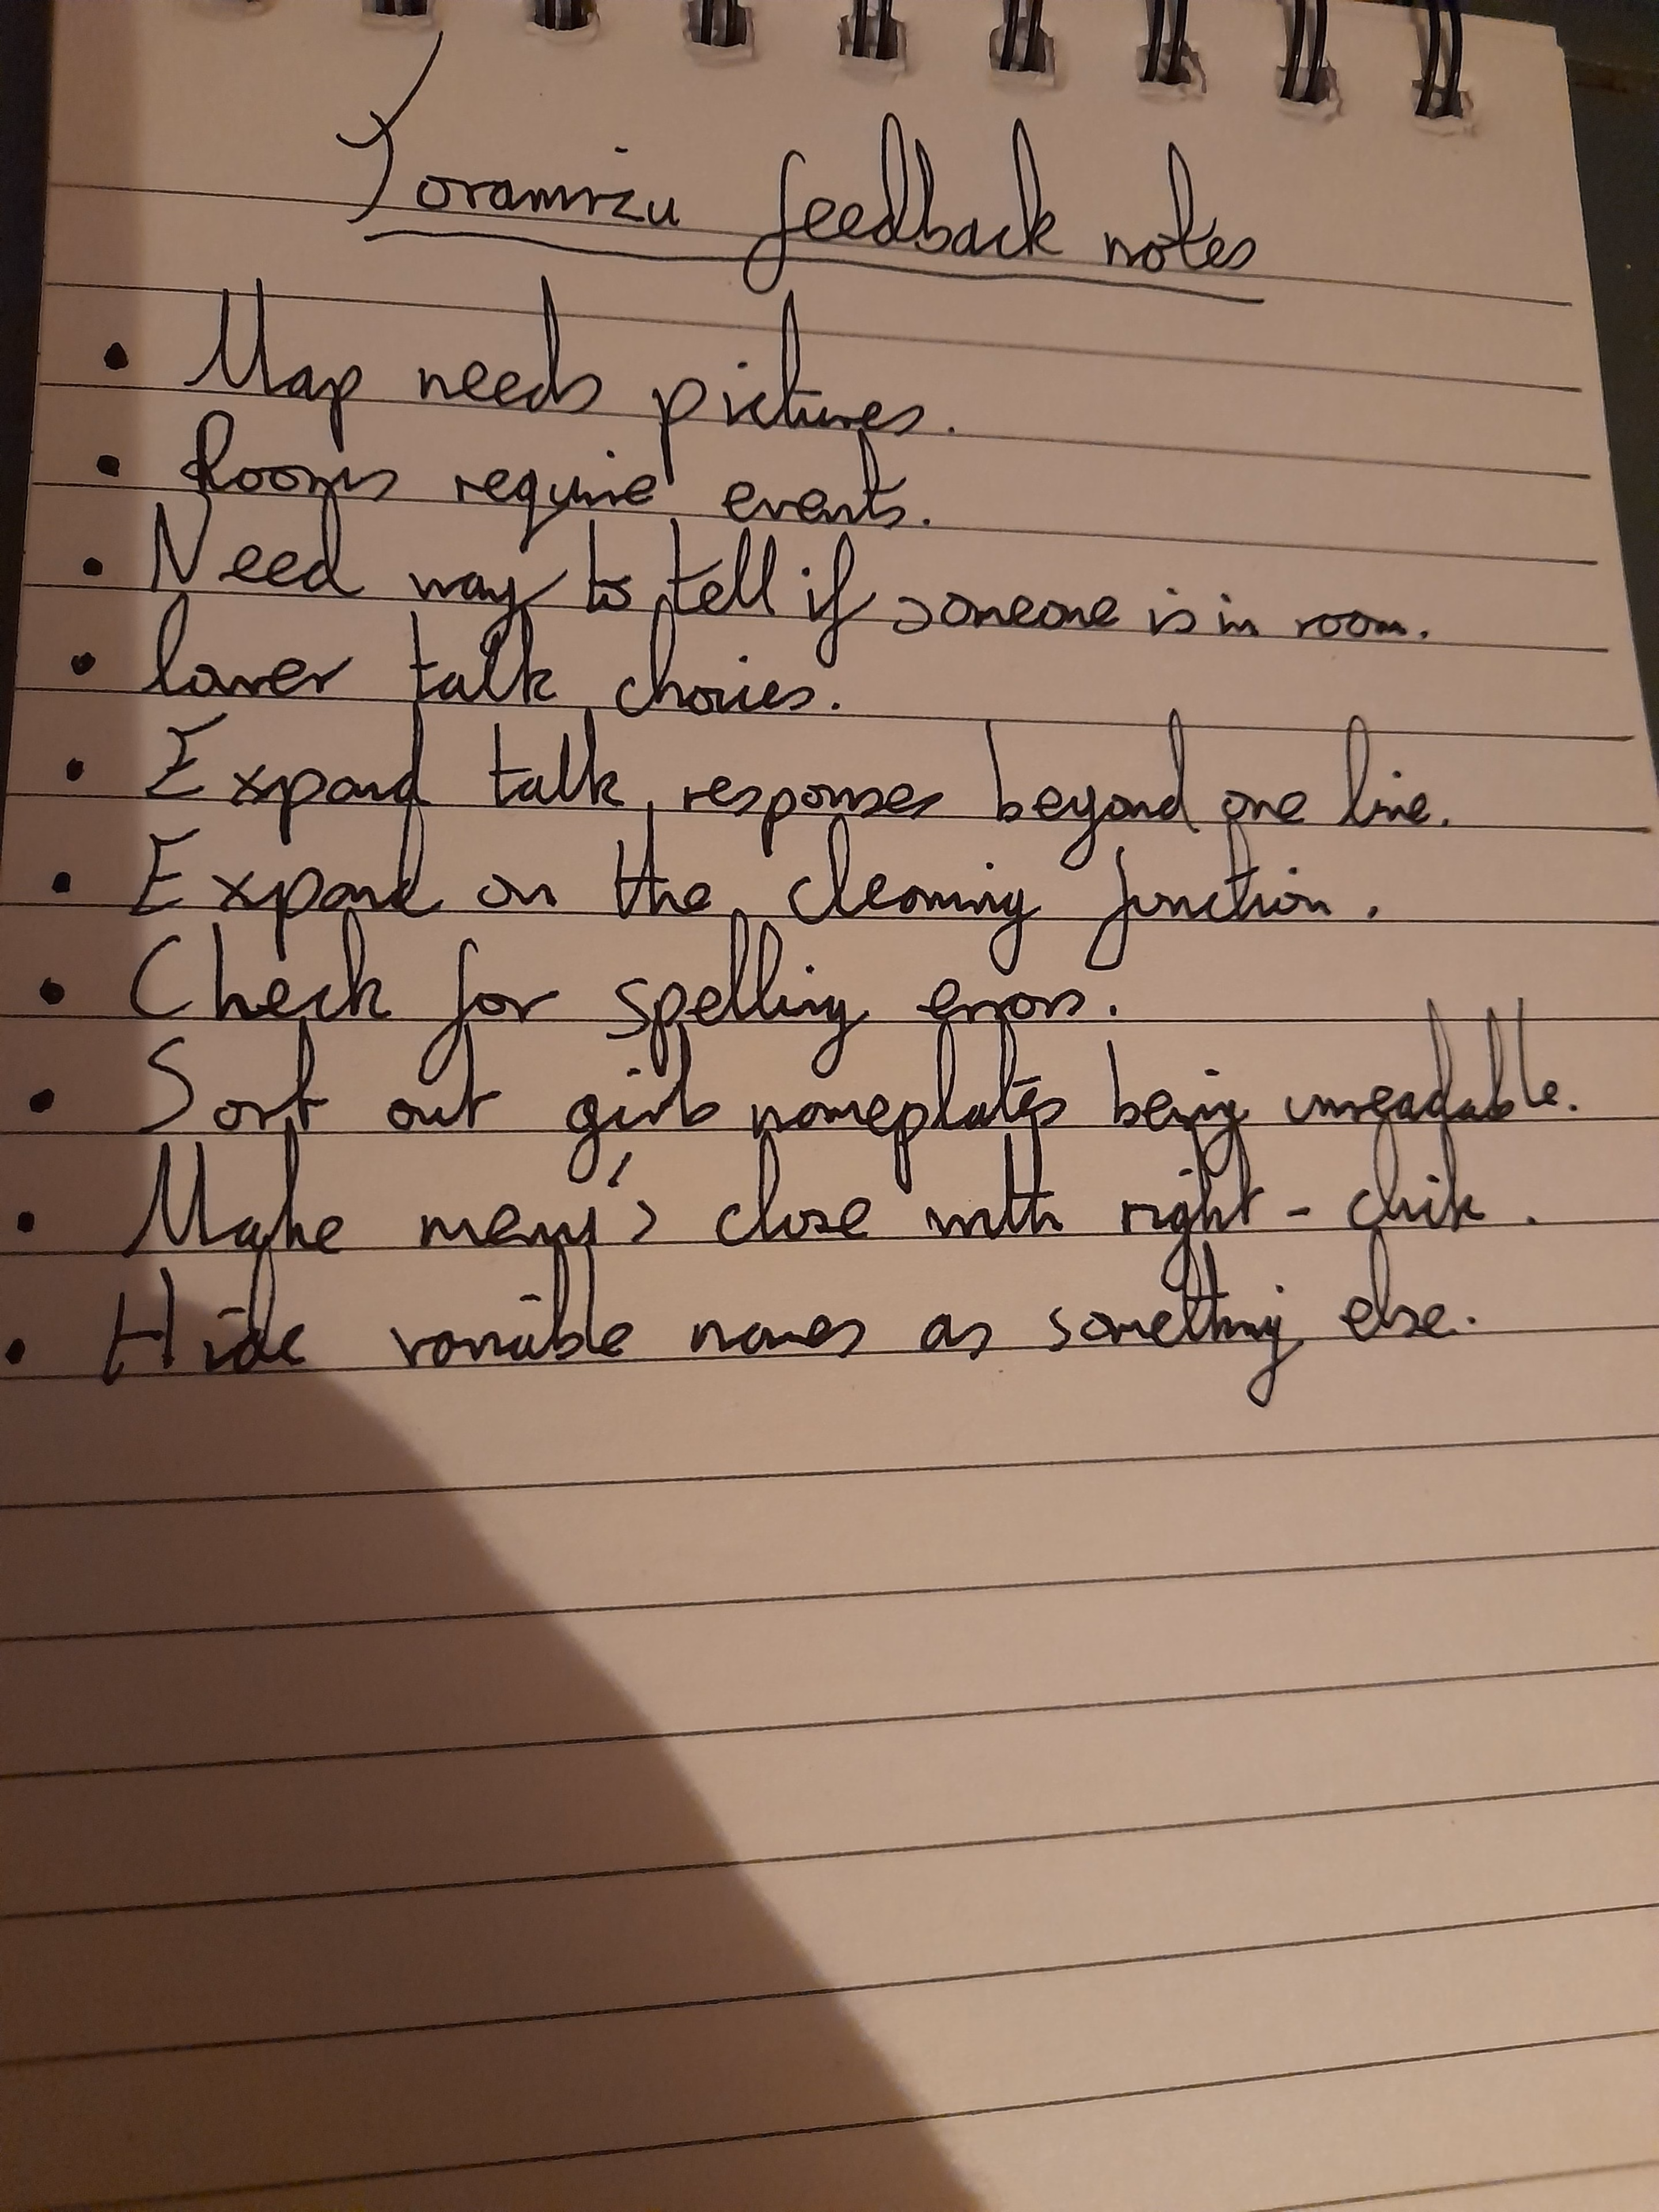 Toramizu feedback notes
• Map needs pictures.
• Rooms require events.
• Need way to tell if someone is in room.
• lower talk choices.
• Expand talk responses beyond one line.
• Expand on the cleaning function.
• Check for spelling errors.
• Sort out girls nameplates being unreadable.
• Make menu's close with right-click.
• Hide variable names as something else.